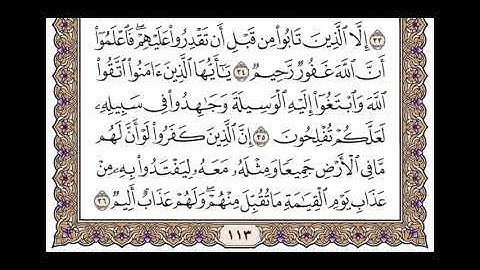 ٣٣ إِلَّا الَّذِينَ تَابُوا۟ مِن قَبْلِ أَن تَقْدِرُوا۟ عَلَيْهِمْ ۖ فَاعْلَمُوٓا۟
أَنَّ اللَّهَ غَفُورٌ رَّحِيمٌ ٣٤ يَٰٓأَيُّهَا الَّذِينَ ءَامَنُوا۟ اتَّقُوا۟
اللَّهَ وَابْتَغُوٓا۟ إِلَيْهِ الْوَسِيلَةَ وَجَٰهِدُوا۟ فِى سَبِيلِهِۦ
لَعَلَّكُمْ تُفْلِحُونَ ٣٥ إِنَّ الَّذِينَ كَفَرُوا۟ لَوْ أَنَّ لَهُم
مَّا فِى الْأَرْضِ جَمِيعًا وَمِثْلَهُۥ مَعَهُۥ لِيَفْتَدُوا۟ بِهِۦ مِنْ
عَذَابِ يَوْمِ الْقِيَٰمَةِ مَا تُقُبِّلَ مِنْهُمْ ۖ وَلَهُمْ عَذَابٌ أَلِيمٌ ٣٦
١١٣